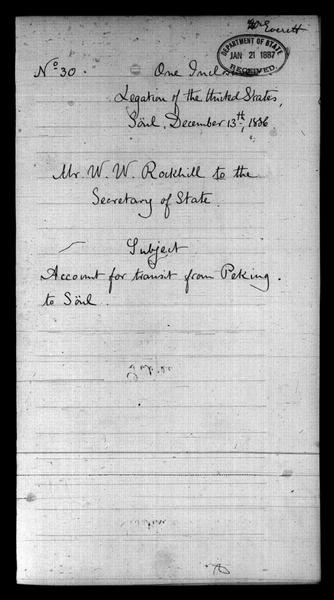 Everett
DEPARTMENT OF STATE
JAN 21 1887
RECEIVED
No 30. One Inclos
Legation of the United States,
Söul, December 13th, 1886
Mr. W. W. Rockhill to the
Secretary of State
Subject
Account for transit from Peking
to Söul.